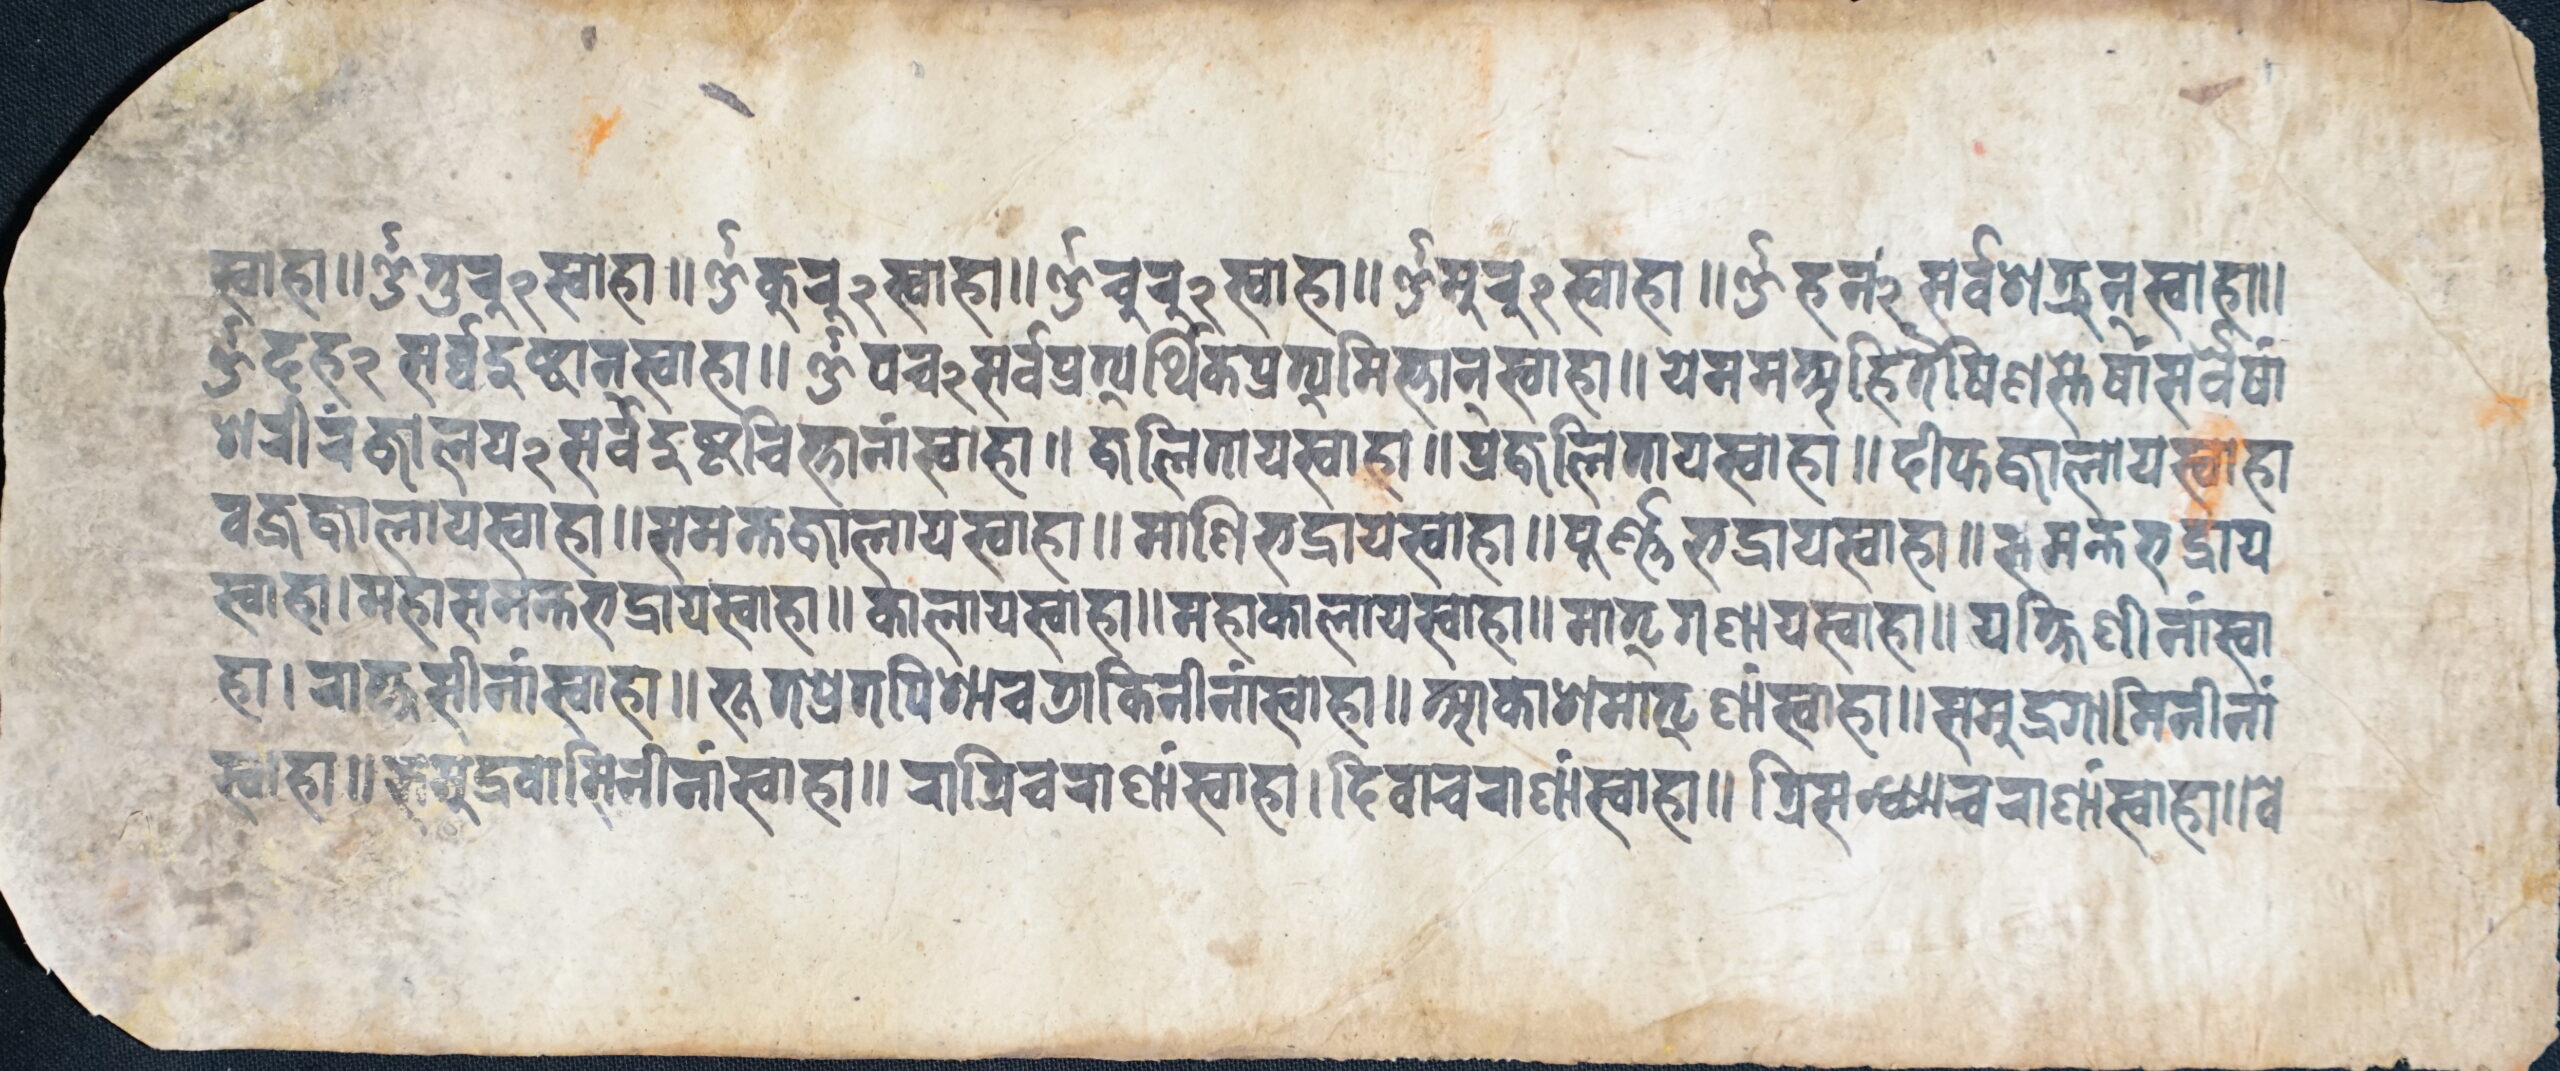 स्वाहा॥ ॐ तुरु२स्वाहा॥ ॐ कुरु२स्वाहा॥ ॐ चुरु२स्वाहा॥ ॐ मुरु२स्वाहा॥ ॐ हन२ सर्वशत्रुन्स्वाहा॥
ॐ दह२ सर्व्वदुष्टानस्वाहा॥ ॐ पच२सर्वप्रत्यर्थिकप्रत्यमित्रान्स्वाहा॥ येममअहितैषिणस्तेषांसर्वेषां
शरीरंज्वालय२सर्वदुष्टचित्तानांस्वाहा॥ ज्वलितायस्वाहा॥ प्रज्वलितायस्वाहा॥ दीप्तज्वालायस्वाहा
वज्रज्वालायस्वाहा॥ समन्तज्वालायस्वाहा॥ माणिभद्रायस्वाहा॥ पूर्ण्णभद्रायस्वाहा॥ समन्तभद्राय
स्वाहा। महासमन्तभद्रायस्वाहा॥ कालायस्वाहा॥ महाकालायस्वाहा॥ मातृगणायस्वाहा॥ यक्षिणीनांस्वा
हा। राक्षसीनांस्वाहा॥ भूतप्रेतपिशाचडाकिनीनांस्वाहा॥ आकाशमातृणांस्वाहा॥ समुद्रगामिनीनां
स्वाहा॥ समुद्रवासिनीनांस्वाहा॥ रात्रिचराणांस्वाहा। दिवाचराणांस्वाहा॥ त्रिसन्ध्याचराणांस्वाहा॥ वे